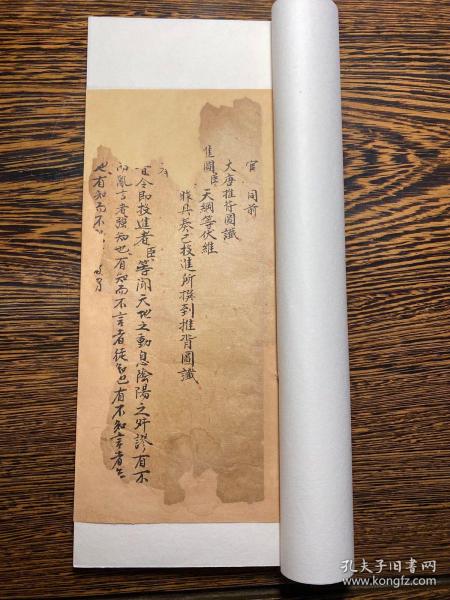 官 同前
大唐推背圖讖
隹圖臣天綱等伏維
昨具奏已投進所撰到推背圖讖
宜令即投進者臣等聞天地之動息陰陽之 謬有不
而亂言者強知也有知而不言者徒知也有不知言者
也有知而不
孔夫子旧书网
www.kongfz.com